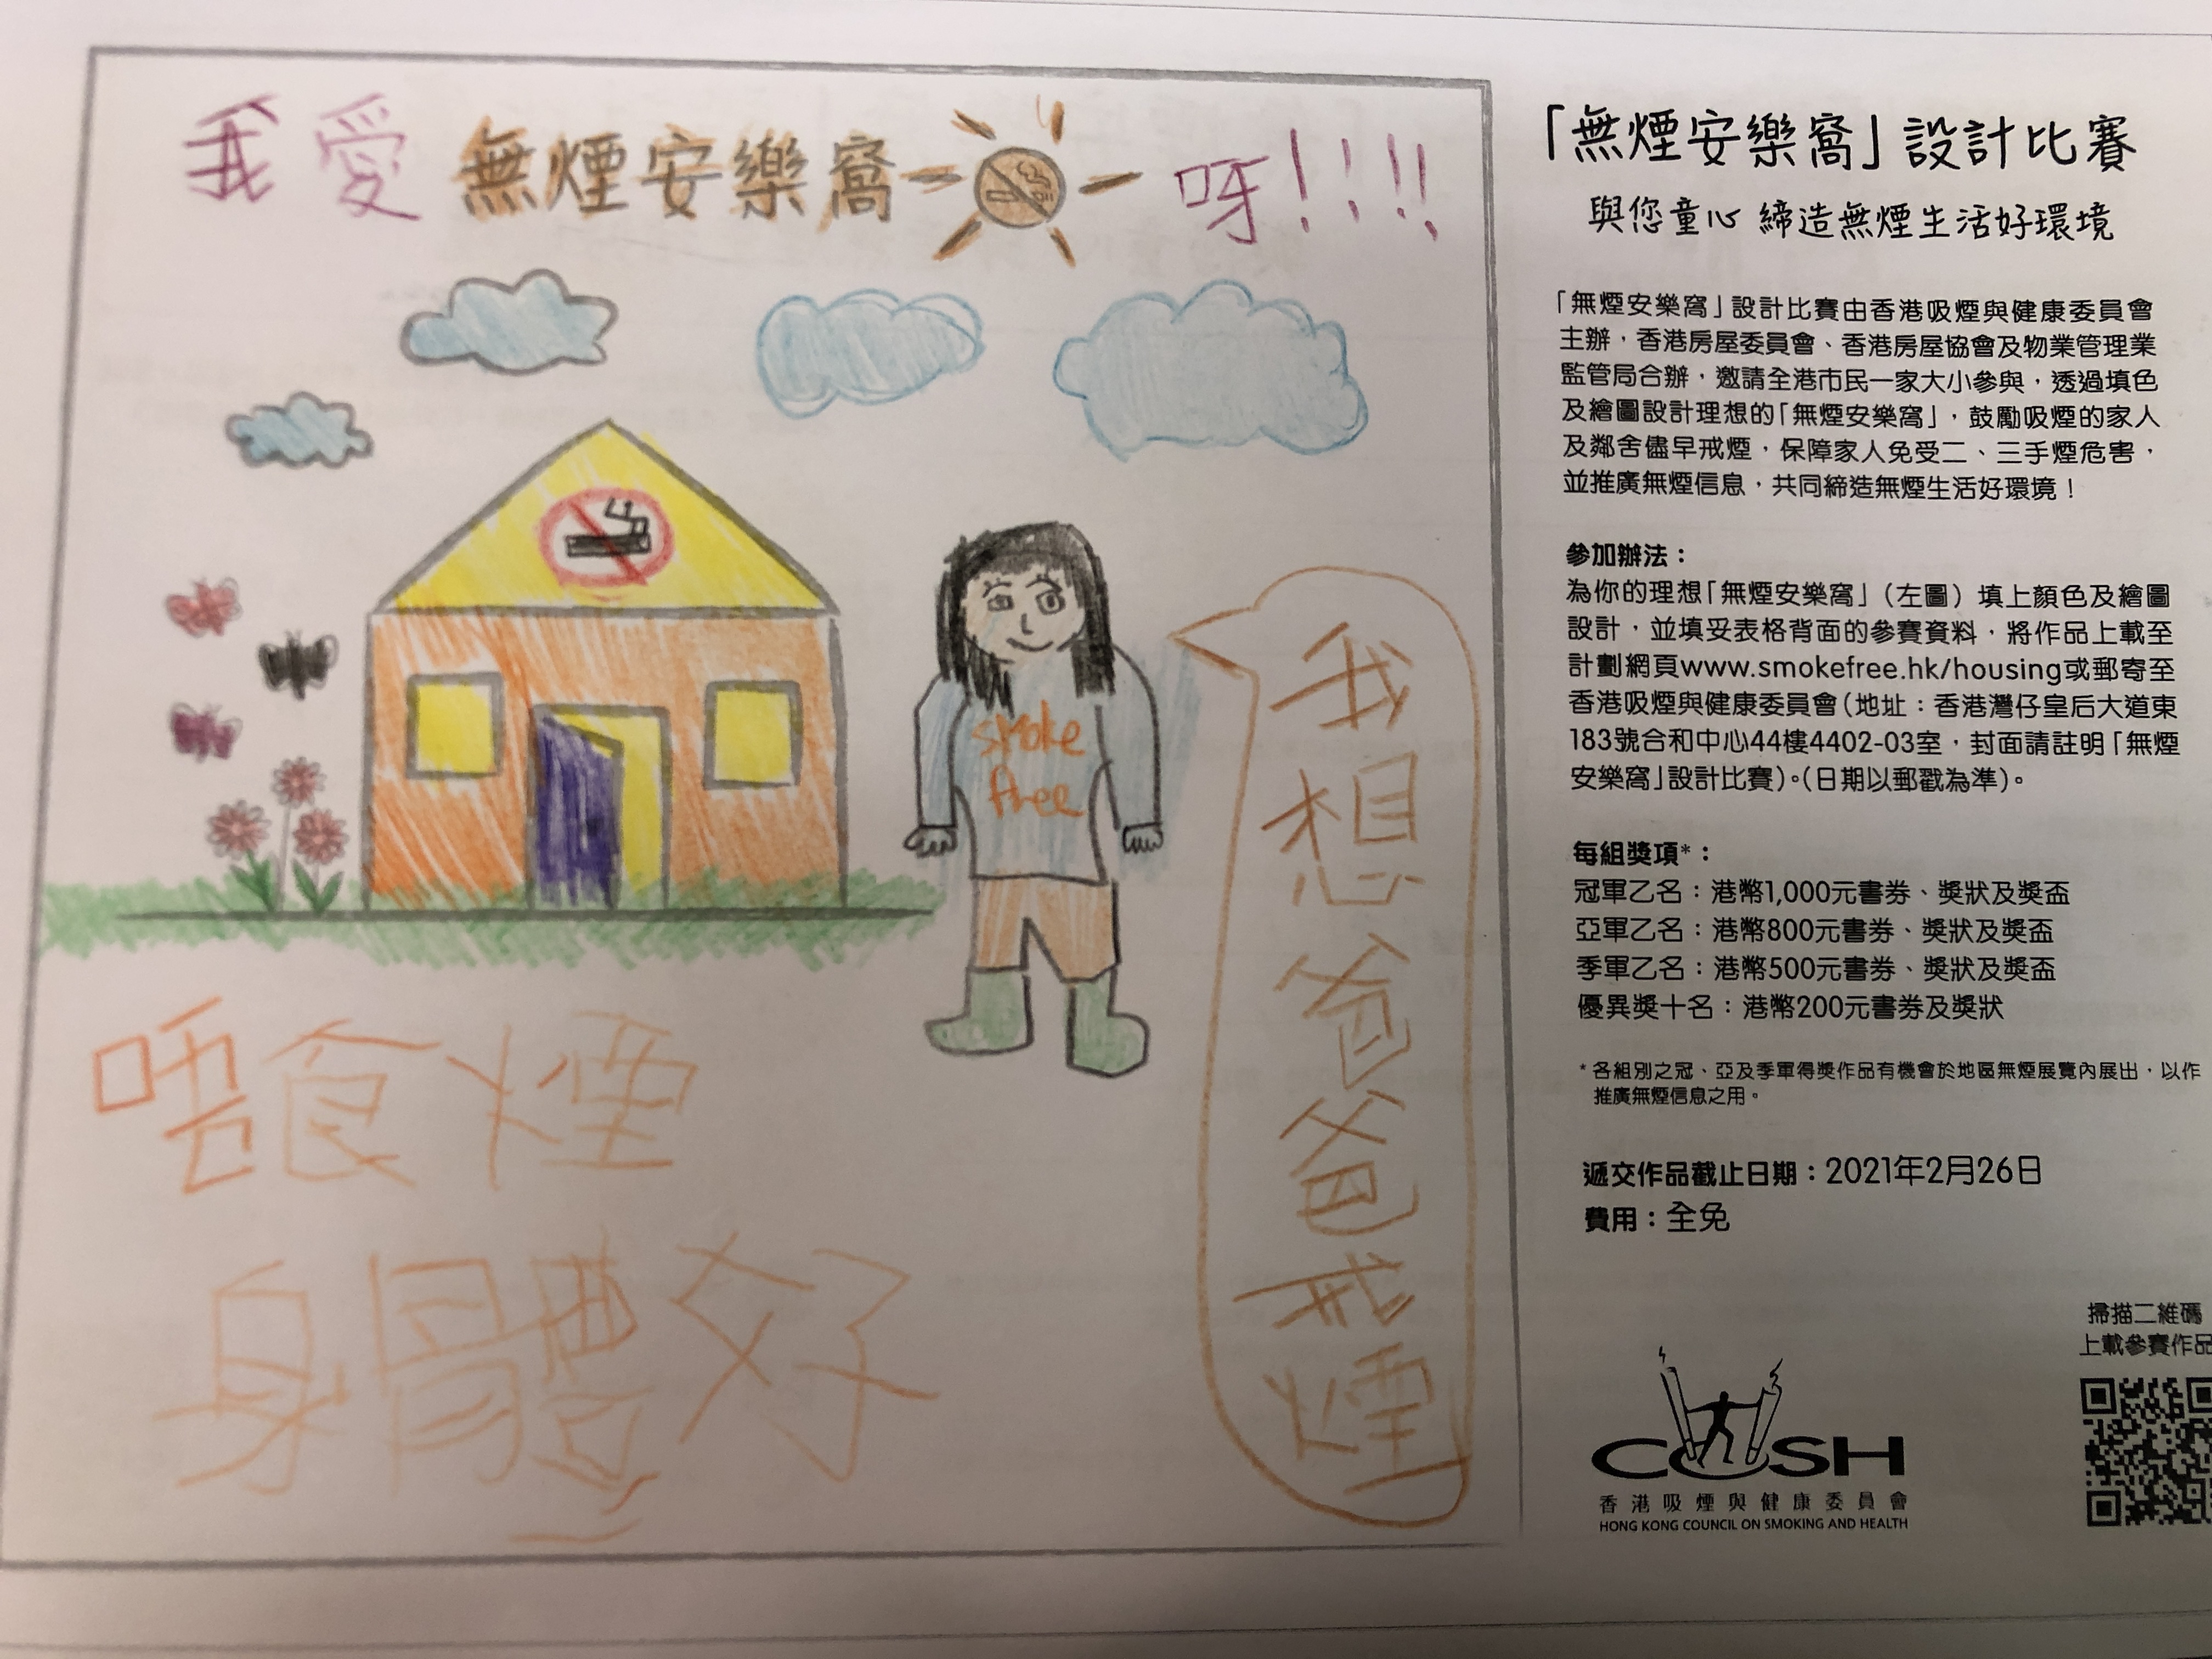 我愛無煙安樂窩呀！！！！
smoke
free
我想爸爸戒煙
唔食煙
身體好
「無煙安樂窩」設計比賽
與您童心 締造無煙生活好環境
「無煙安樂窩」設計比賽由香港吸煙與健康委員會
主辦，香港房屋委員會、香港房屋協會及物業管理業
監管局合辦，邀請全港市民一家大小參與，透過填色
及繪圖設計理想的「無煙安樂窩」，鼓勵吸煙的家人
及鄰舍儘早戒煙，保障家人免受二、三手煙危害，
並推廣無煙信息，共同締造無煙生活好環境！
參加辦法：
為你的理想「無煙安樂窩」（左圖）填上顏色及繪圖
設計，並填妥表格背面的參賽資料，將作品上載至
計劃網頁www.smokefree.hk/housing或郵寄至
香港吸煙與健康委員會（地址：香港灣仔皇后大道東
183號合和中心44樓4402-03室，封面請註明「無煙
安樂窩」設計比賽）。（日期以郵戳為準）。
每組獎項*：
冠軍乙名：港幣1,000元書券、獎狀及獎盃
亞軍乙名：港幣800元書券、獎狀及獎盃
季軍乙名：港幣500元書券、獎狀及獎盃
優異獎十名：港幣200元書券及獎狀
* 各組別之冠、亞及季軍得獎作品有機會於地區無煙展覽內展出，以作
推廣無煙信息之用。
遞交作品截止日期：2021年2月26日
費用：全免
掃描二維碼
上載參賽作品
COSH
香港吸煙與健康委員會
HONG KONG COUNCIL ON SMOKING AND HEALTH